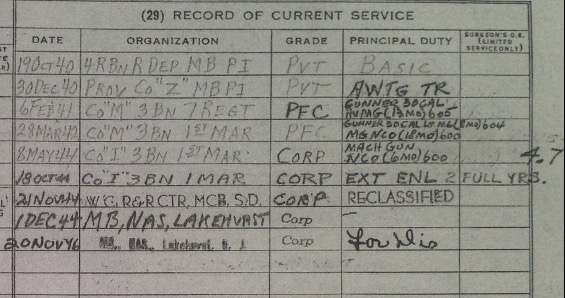 (29) RECORD OF CURRENT SERVICE
DATE ORGANIZATION GRADE PRINCIPAL DUTY SURGEON'S O.K. (LIMITED SERVICE ONLY)
19 OCT 40 4 R BN R DEP MB PI PVT BASIC
30 DEC 40 PROV CO "Z" MB PI PVT AWTG TR
6 FEB 41 CO "M" 3 BN 7 REGT PFC GUNNER 30 CAL
605
28 MAR 42 CO "M" 3 BN 1ST MAR PFC GUNNER 30 CAL 604
MG NCO (18 MO) 600
8 MAY 44 CO "I" 3 BN 1ST MAR CORP MACH GUN
NCO (6 MO) 600
4.7
18 OCT 44 CO "I" 3 BN 1 MAR CORP EXT ENL 2 FULL YRS.
21 NOV 44 W.G, R&R CTR, MCB, S.D. CORP RECLASSIFIED
1 DEC 44 MB, NAS, LAKEHURST Corp —
20 NOV 46 MB, NAS, Lakehurst, N. J. Corp For Dis